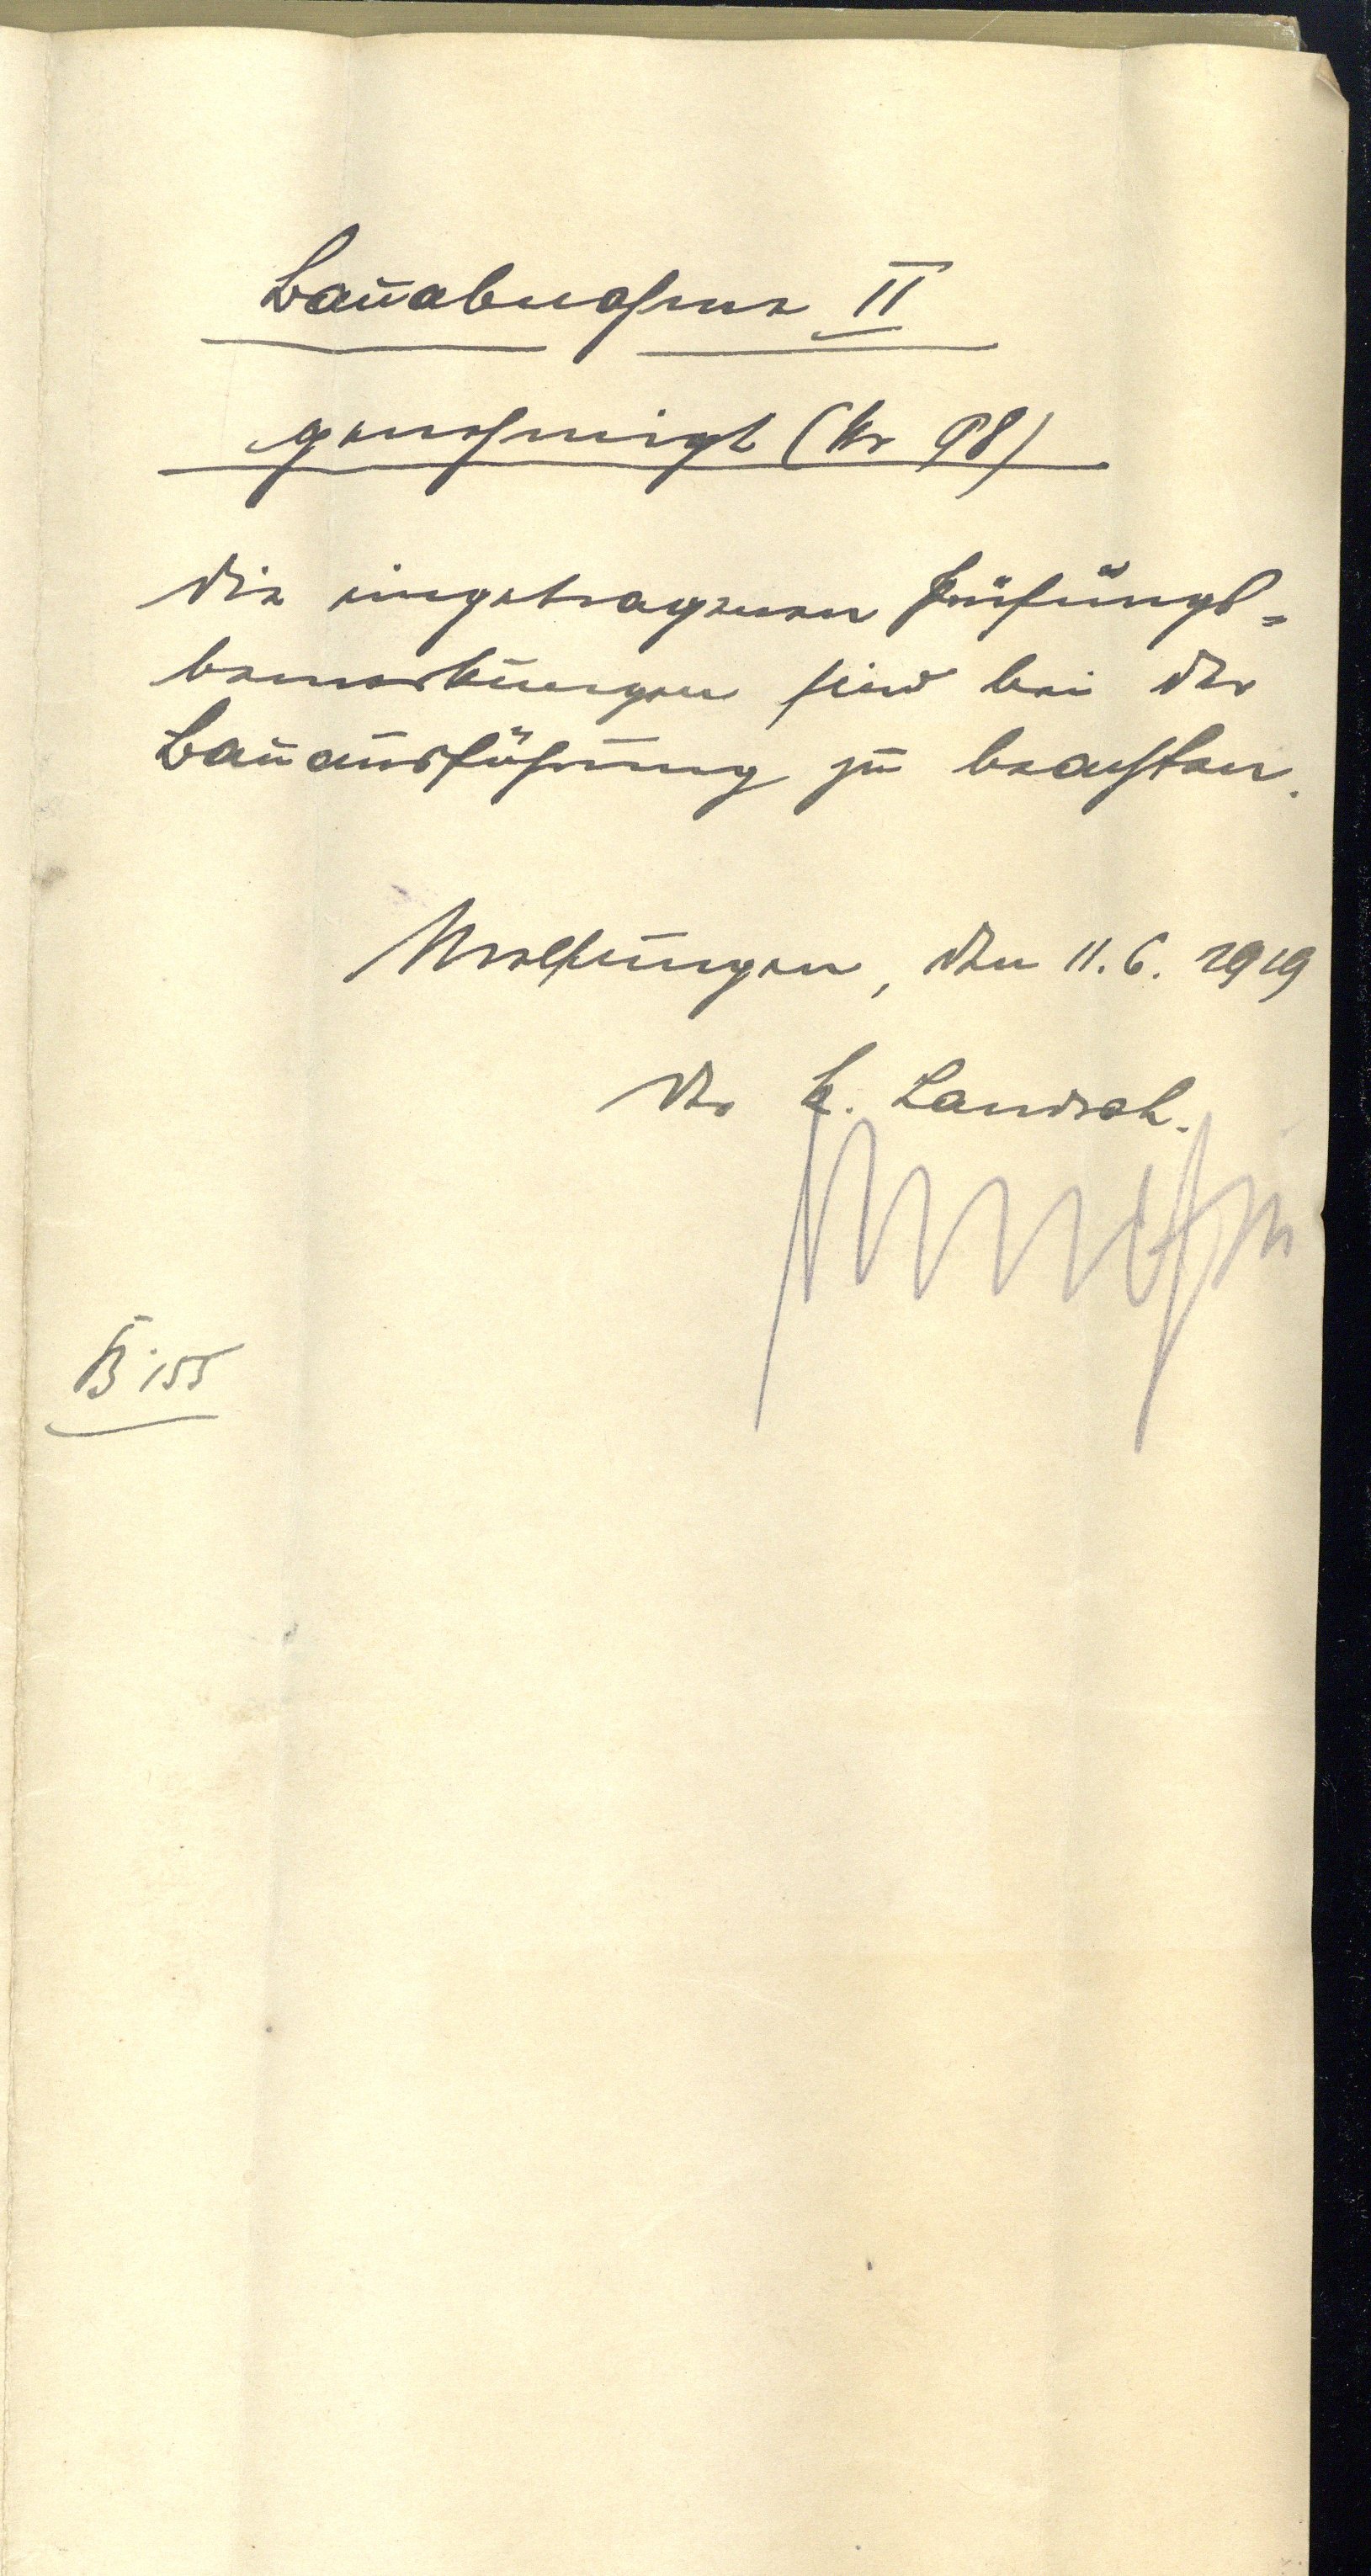 Bauabnahme II
genehmigt (Nr 98)
Die eingetragenen Prüfungs=
bemerkungen sind bei der
Bauausführung zu beachten.
Melsungen, den 11. 6. 1919
Der k. Landrat.
B 155